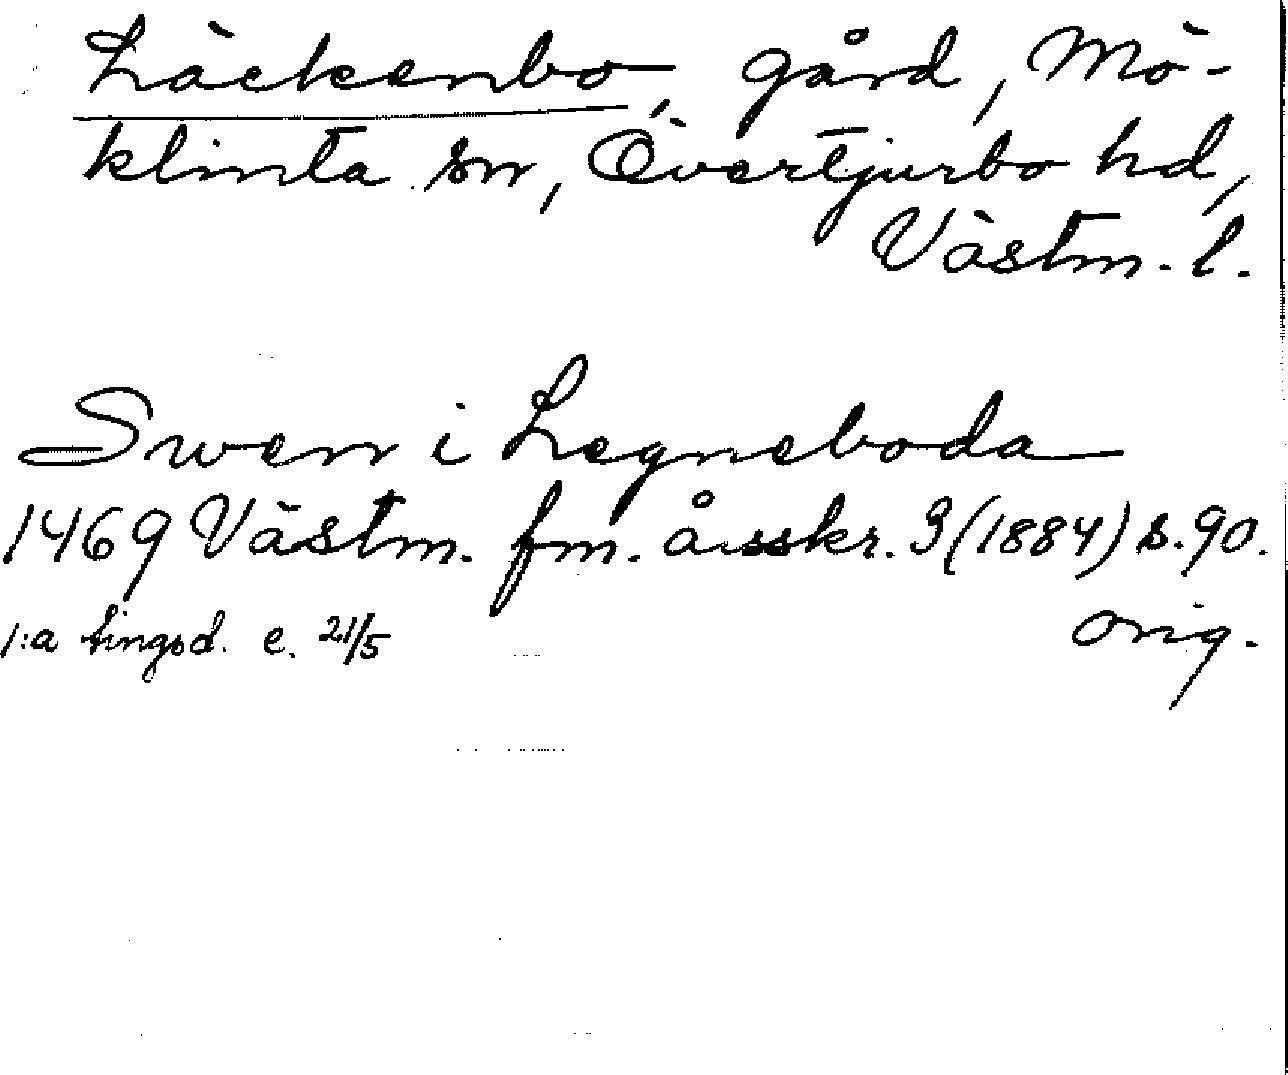 Läckenbo, gård, Mö-
klinta sn, Övertjurbo hd,
Västm. l.
Swen i Legneboda
1469 Västm. fm. årsskr. 3 (1884) s. 90.
1:a tingsd. e. 21/5 orig.